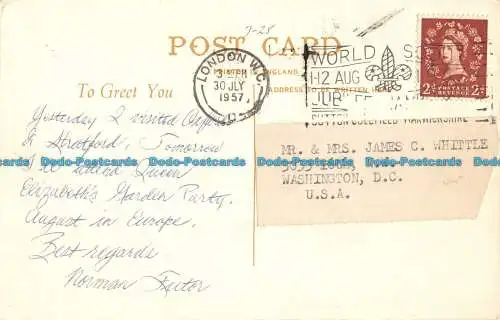 7-28
POST CARD
PRINTED IN ENGLAND
ADDRESS TO BE WRITTEN HERE
LONDON W.C.
30 JLY
1957
WORLD
1-12 AUG
SUTTON COLDFIELD WARWICKSHIRE
POSTAGE
REVENUE
2½ 2½
To Greet You
Yesterday I visited
Stratford. Tomorrow
I'll attend Queen
Elizabeth's Garden Party.
August in Europe.
Best regards
Norman
MR. & MRS. JAMES C. WHITTLE
WASHINGTON, D.C.
U.S.A.
Postcards Postcards Postcards Postcards Postcards Postcards